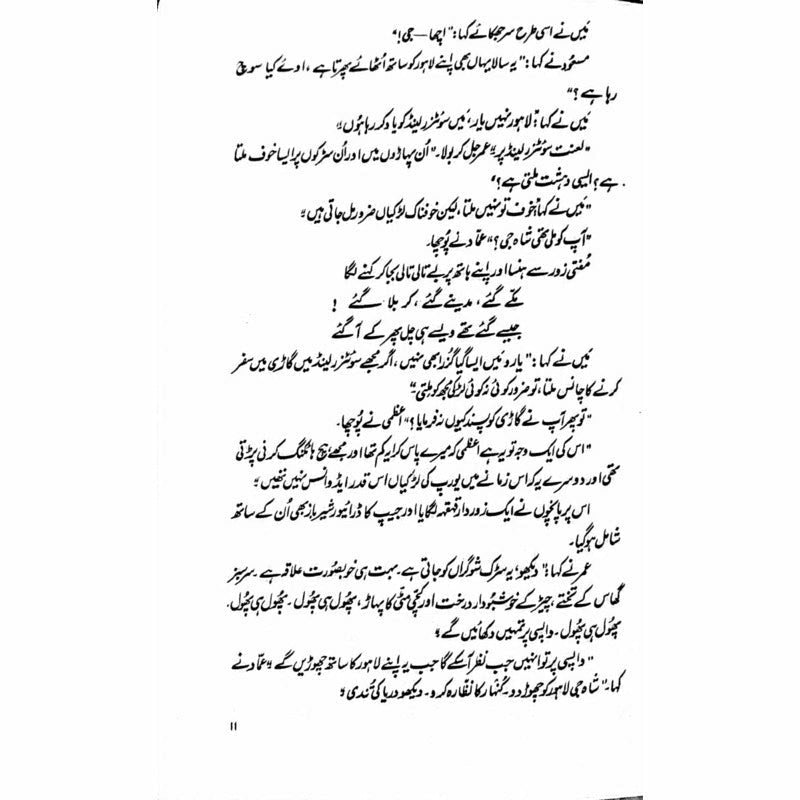 مَیں نے اسی طرح سر جھکائے کہا: "اچھا — جی!"
مسعود نے کہا: "یہ سالا یہاں بھی اپنے لاہور کو ساتھ اُٹھائے پھرتا ہے، اوئے کیا سوچ
رہا ہے؟"
مَیں نے کہا: لاہور نہیں یار، مَیں سوئٹزرلینڈ کو یاد کر رہا ہُوں"
"لعنت سوئٹزرلینڈ پر" عمر جل کر بولا۔ "اُن پہاڑوں میں اور اُن سڑکوں پر ایسا خوف ملتا
ہے؟ ایسی دہشت ملتی ہے؟"
"مَیں نے کہا: خوف تو نہیں ملتا، لیکن خوفناک لڑکیاں ضرور مل جاتی ہیں"
"آپ کو ملی تھی شاہ جی؟" عمّاد نے پُوچھا۔
مُفتی زور سے ہنسا اور اپنے ہاتھ پر بے تالی تالی بجا کر کہنے لگا
مکّے گئے، مدینے گئے، کربلا گئے !
جیسے گئے تھے ویسے ہی چل پھر کے آ گئے
مَیں نے کہا: "یارو مَیں ایسا گیا گُزرا بھی نہیں، اگر مجھے سوئٹزرلینڈ میں گاڑی میں سفر
کرنے کا چانس ملتا، تو ضرور کوئی نہ کوئی لڑکی مجھ کو ملتی۔"
"تو پھر آپ نے گاڑی کو پسند کیوں نہ فرمایا؟" اعظمی نے پُوچھا۔
"اس کی ایک وجہ تو یہ ہے اعظمی کہ میرے پاس کرایہ کم تھا اور مجھے ہیچ ہائکنگ کرنی پڑتی
تھی اور دوسرے یہ کہ اس زمانے میں یورپ کی لڑکیاں اس قدر ایڈوانس نہیں تھیں"
اس پر پانچوں نے ایک زوردار قہقہہ لگایا اور جیپ کا ڈرائیور شیرباز بھی اُن کے ساتھ
شامل ہو گیا۔
عمر نے کہا: "دیکھو، یہ سڑک شوگراں کو جاتی ہے۔ بہت ہی خوبصُورت علاقہ ہے۔ سرسبز
گھاس کے تختے، چیڑ کے خوشبُودار درخت اور کچّی مٹّی کا پہاڑ، پھُول ہی پھُول۔ پھُول ہی پھُول۔
پھُول ہی پھُول۔ واپسی پر تمہیں دکھائیں گے"
"واپسی پر تو انہیں جب نظر آئے گا جب یہ اپنے لاہور کا ساتھ چھوڑیں گے" عمّاد نے
کہا۔ "شاہ جی لاہور کو چھوڑ دو۔ کُنہار کا نظّارہ کرو۔ دیکھو دریا کی تُندی"
۱۱